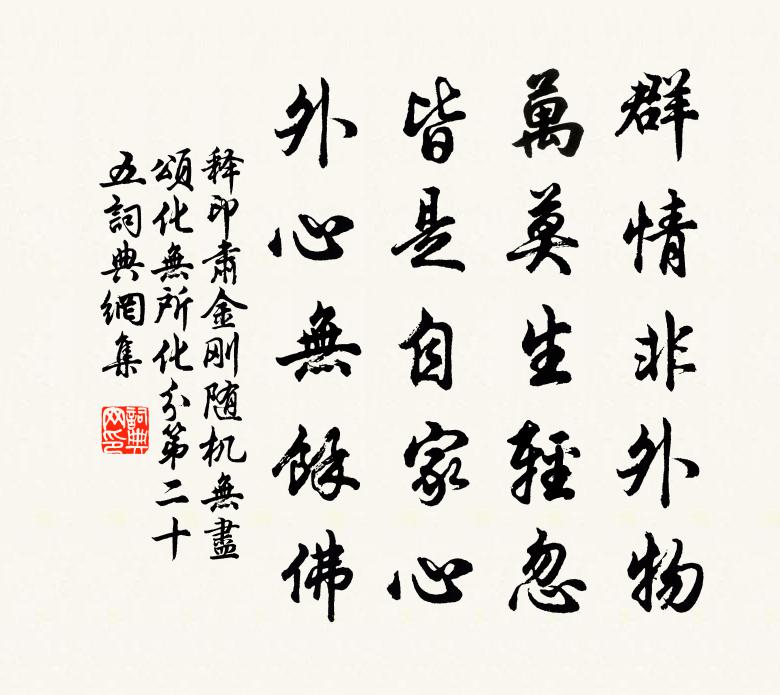 群情非外物
萬莫生輕忽
皆是自家心
外心無餘佛
释印肅金刚随机無盡
頌化無所化分第二十
五詞典網集
詞典网印